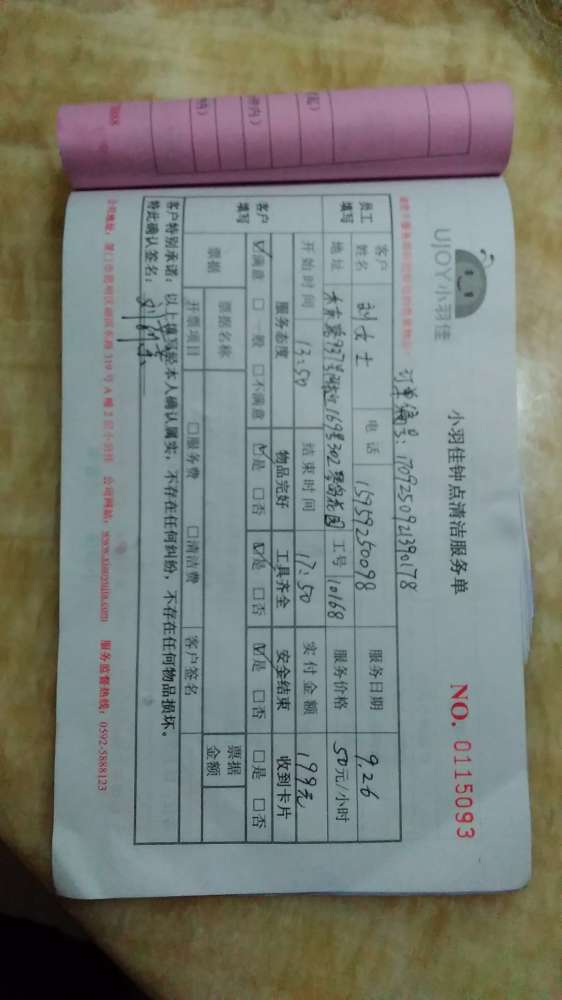 UJOY小羽佳
小羽佳钟点清洁服务单
NO. 0115093
订单编号：1709250921390178
员工填写
客户姓名 刘女士 电话 15959250098 服务日期 9.26
地址 169号302 工号 10168 服务价格 50元/小时
开始时间 13:50 结束时间 17:50 实付金额 199元
客户填写
服务态度 物品完好 工具齐全 安全结束 收到卡片
☑满意 □一般 □不满意 ☑是 □否 ☑是 □否 ☑是 □否 □是 □否
票据 票据名称 票据金额
开票项目 □服务费 □清洁费 客户签名
客户特别承诺：以上填写经本人确认属实，不存在任何纠纷，不存在任何物品损坏。
特此确认签名：
319号A幢2层小羽佳 公司网站：www.xiaoyujia.com 服务监督热线：0592-5888123